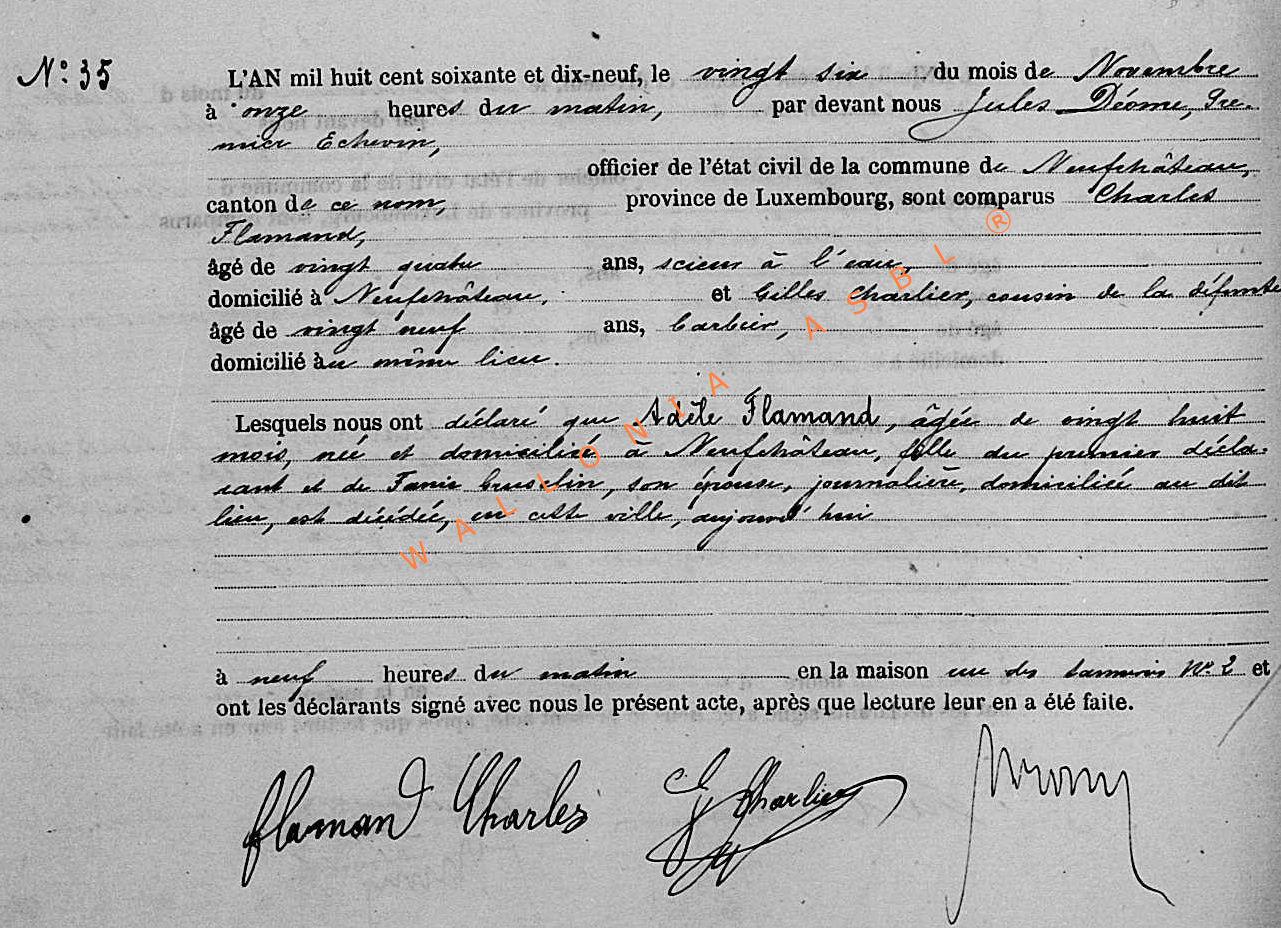 N° 35
L'AN mil huit cent soixante et dix-neuf, le vingt six du mois de Novembre
à onze heures du matin, par devant nous Jules Déome, Pre-
mier Echevin,
officier de l'état civil de la commune de Neufchâteau,
canton de ce nom, province de Luxembourg, sont comparus Charles
Flamand,
âgé de vingt quatre ans, scieur à l'eau,
domicilié à Neufchâteau, et Gilles Charlier, cousin de la défunte
âgé de vingt neuf ans, barbier,
domicilié au même lieu.
Lesquels nous ont déclaré que Adèle Flamand, âgée de vingt huit
mois, née et domiciliée à Neufchâteau, fille du premier décla-
rant et de Fanie, son épouse, journalière, domiciliée au dit
lieu, est décédée, en cette ville, aujourd'hui
à neuf heures du matin en la maison rue des N° 2 et
ont les déclarants signé avec nous le présent acte, après que lecture leur en a été faite.
flamand Charles G Charlier
WALLONIA ASBL ®